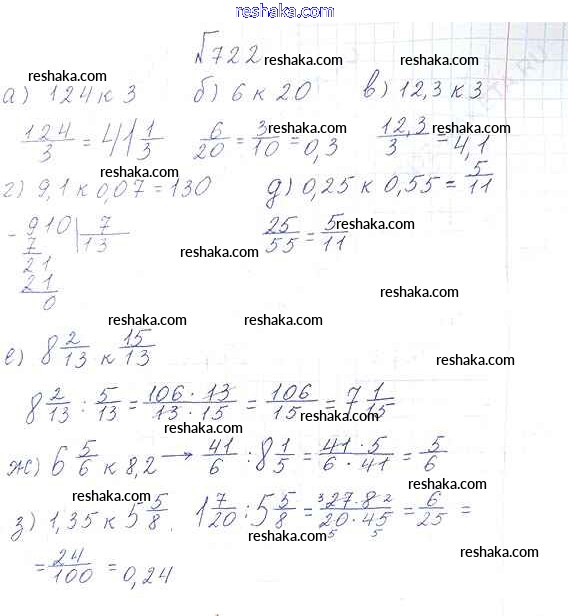 reshaka.com
№722
reshaka.com
reshaka.com
reshaka.com
а) 124 к 3 б) 6 к 20 в) 12,3 к 3
reshaka.com
124/3 = 41 1/3 6/20 = 3/10 = 0,3 12,3/3 = 4,1
reshaka.com
reshaka.com
г) 9,1 к 0,07 = 130 д) 0,25 к 0,55 = 5/11
reshaka.com
- 910 | 7
7 13
21
21
0
25/55 = 5/11
reshaka.com
reshaka.com
reshaka.com
reshaka.com
reshaka.com
е) 8 2/13 к 15/13
reshaka.com
8 2/13 : 5/13 = 106·13/13·15 = 106/15 = 7 1/15
reshaka.com
reshaka.com
ж) 6 5/6 к 8,2 → 41/6 : 8 1/5 = 41·5/6·41 = 5/6
reshaka.com
reshaka.com
з) 1,35 к 5 5/8. 1 7/20 : 5 5/8 = 3 27·8 2/20·45 5 5 = 6/25 =
reshaka.com
reshaka.com
= 24/100 = 0,24
reshaka.com